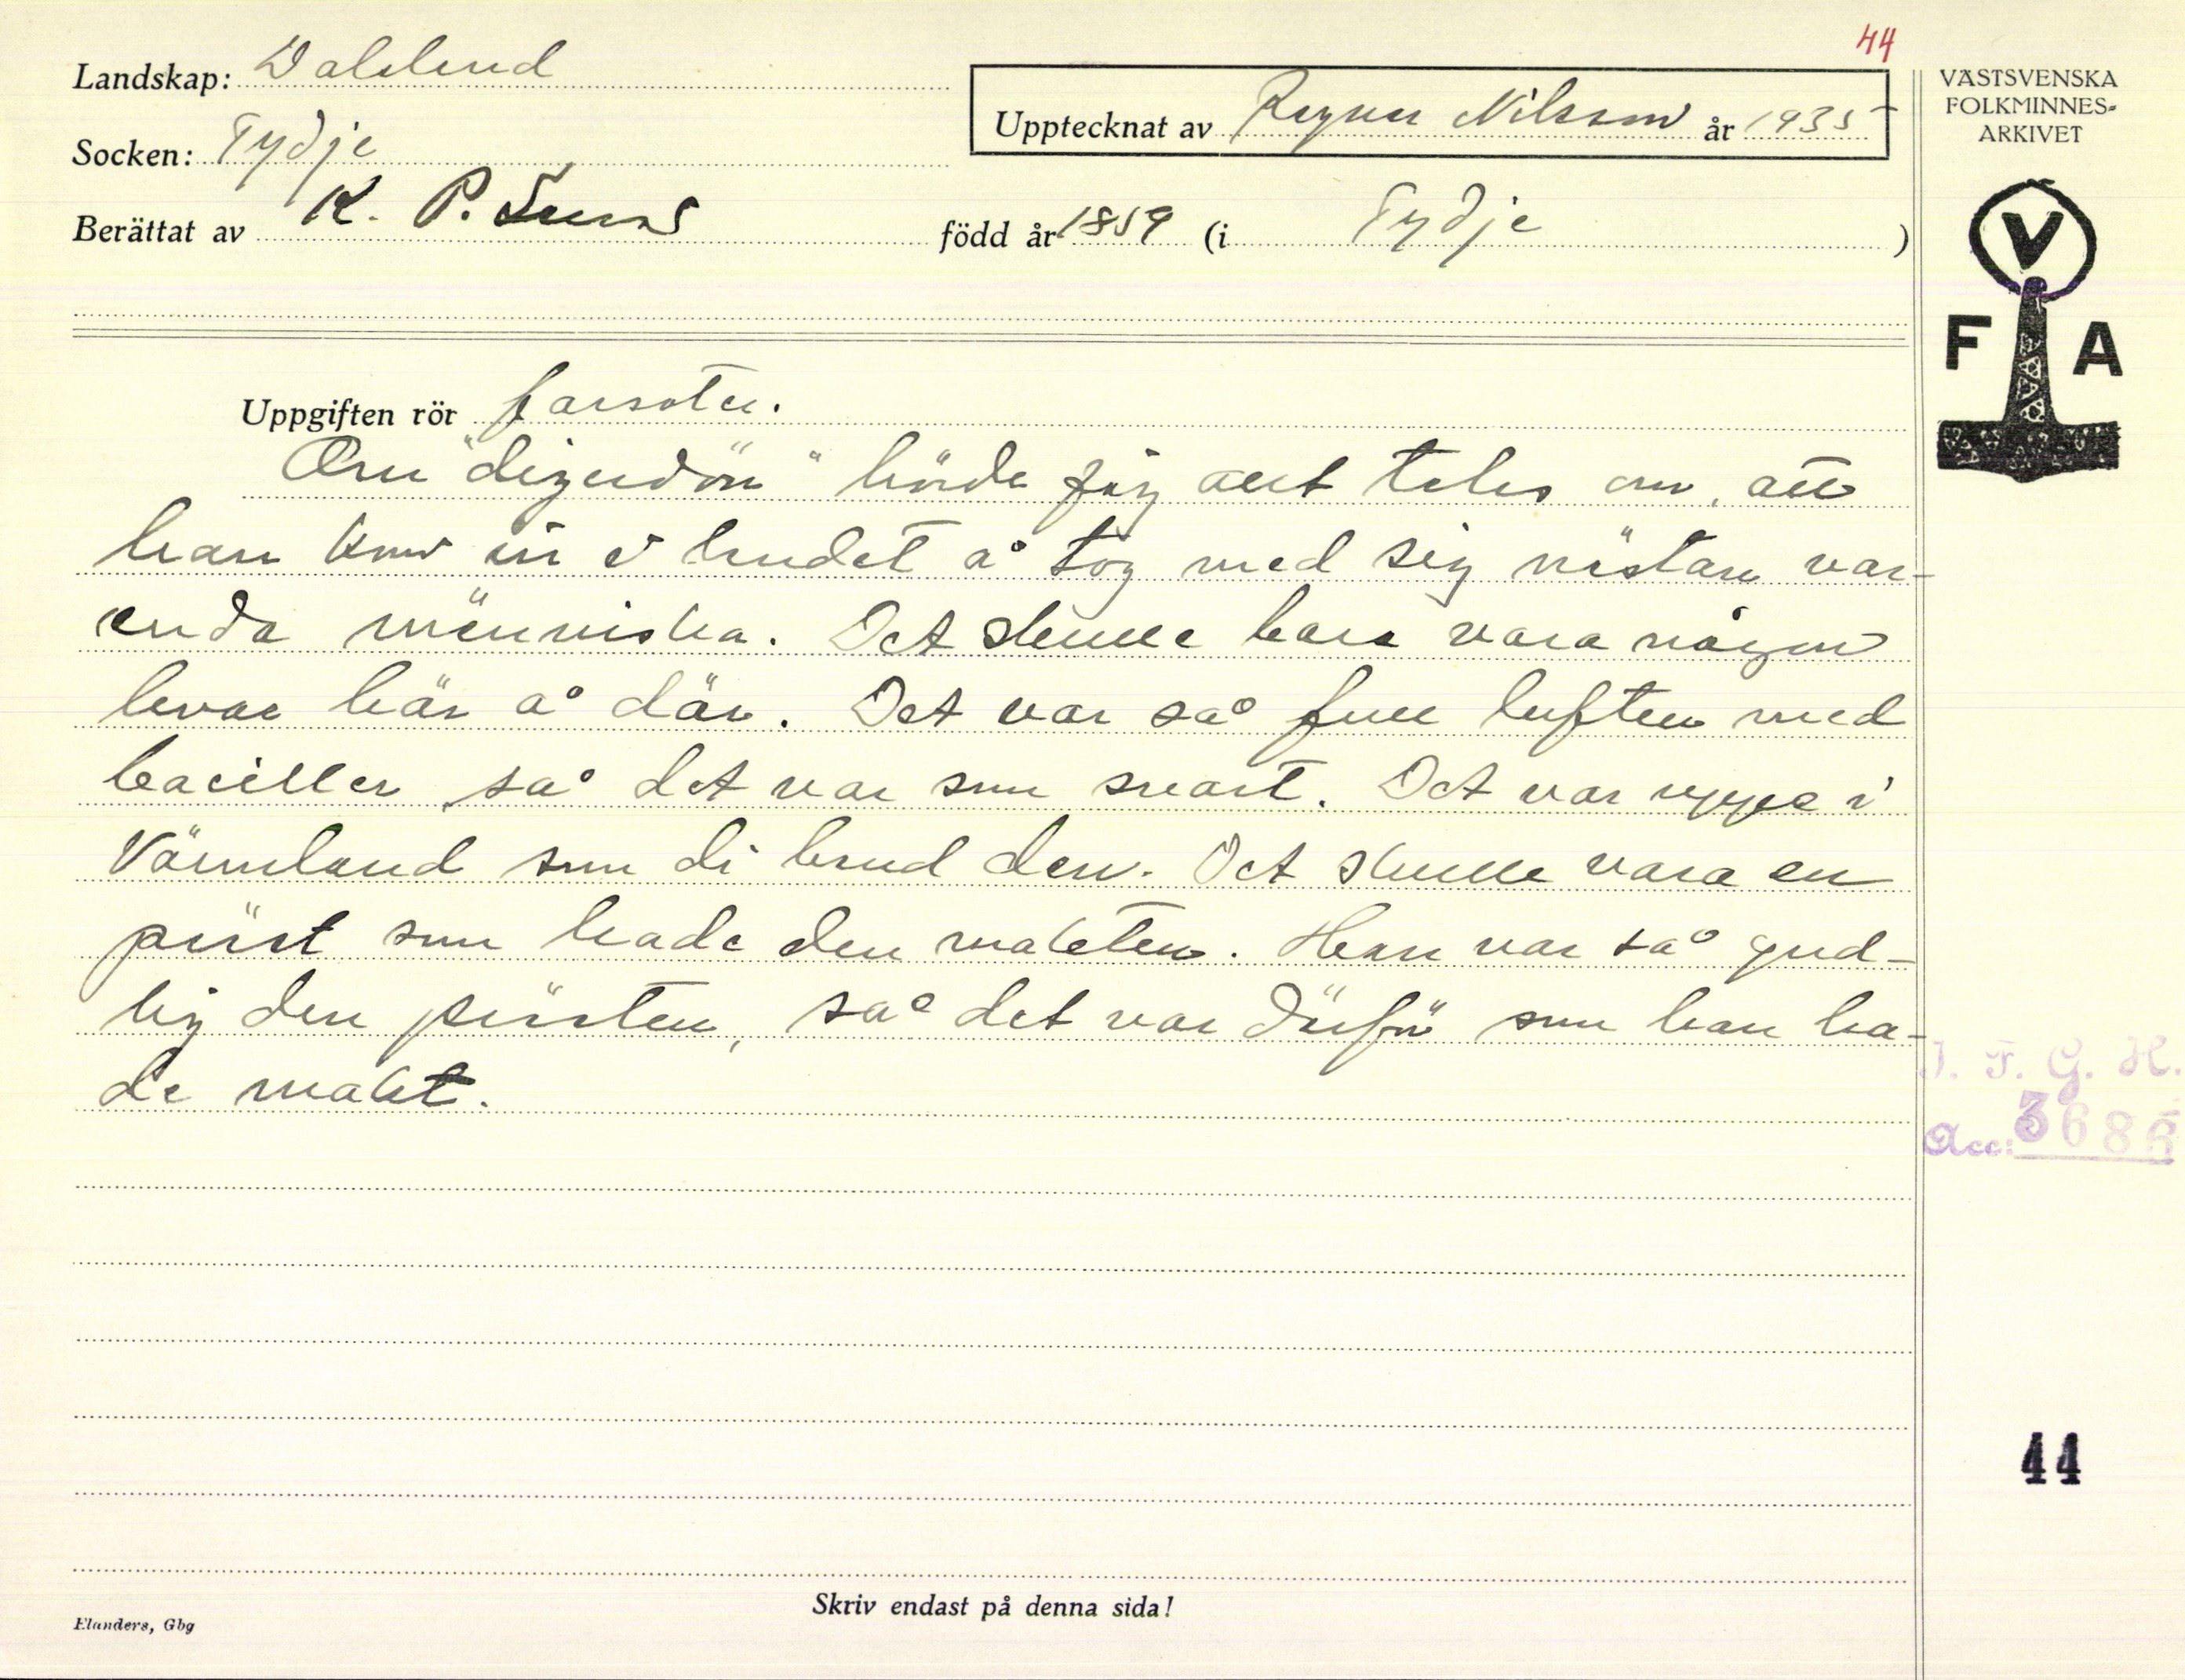 44
Landskap: Dalsland
Upptecknat av Ragnar Nilsson år 1935
VÄSTSVENSKA
FOLKMINNES-
ARKIVET
Socken: Tydje
Berättat av K. P.
född år 1859 (i Tydje )
V
F A
Uppgiften rör farsoter.
Om "digerdön" hörde jag allt talas om, att
han kom in i landet å tog med sig nästan var-
enda människa. Det skulle bara vara någon
levae här å där. Det var så full luften med
baciller, så det var som svart. Det var uppe i
Värmland som di band den. Det skulle vara en
präst som hade den makten. Han var så gud-
lig den prästen, så det var därför som han ha-
de makt.
I. F. G. H.
Acc: 3685
44
Skriv endast på denna sida!
Elanders, Gbg